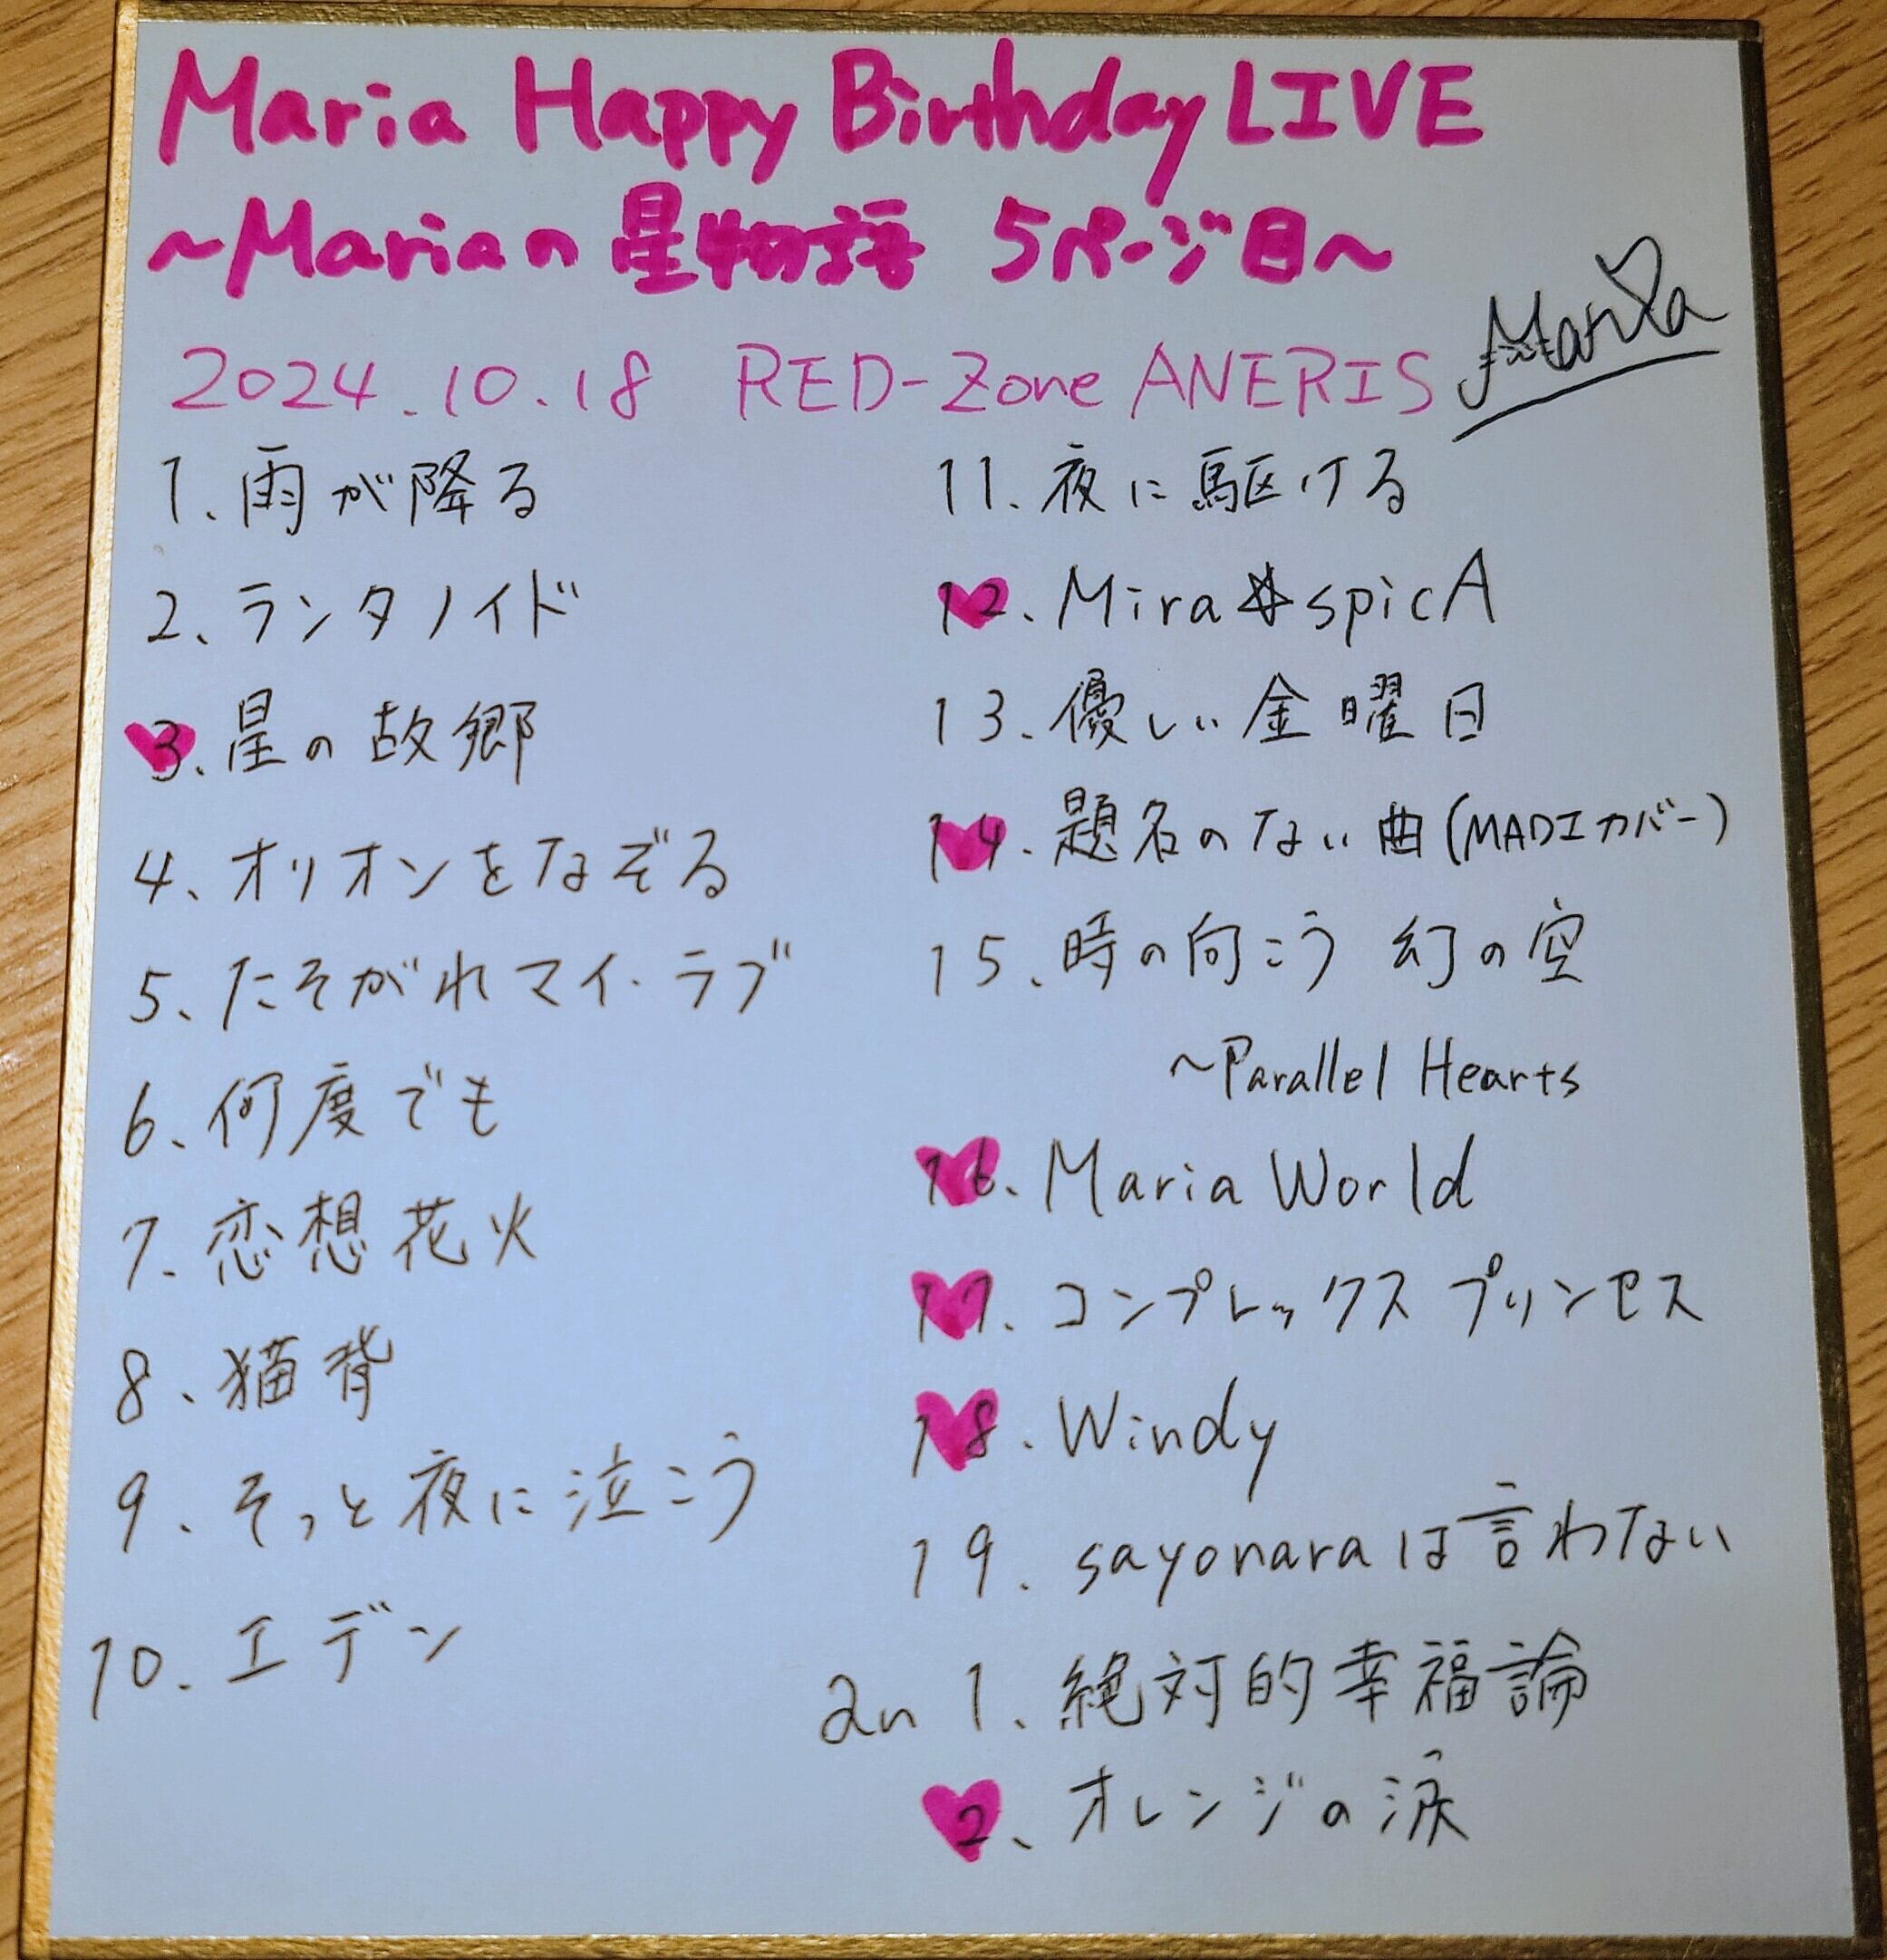 Maria Happy Birthday LIVE
~Mariaの星物語 5ページ目~
2024.10.18 RED-Zone ANERIS
Maria
1. 雨が降る
2、ランタノイド
3. 星の故郷
4、オリオンをなぞる
5、たそがれマイ・ラブ
6、何度でも
7. 恋想花火
8、猫背
9、そっと夜に泣こう
10. エデン
11. 夜に駆ける
12. Mira☆spicA
13. 優しい金曜日
14. 題名のない曲(MADIカバー)
15、時の向こう 幻の空
~Parallel Hearts
16、Maria World
17. コンプレックス プリンセス
18. Windy
19. sayonaraは言わない
an 1、絶対的幸福論
2、オレンジの涙